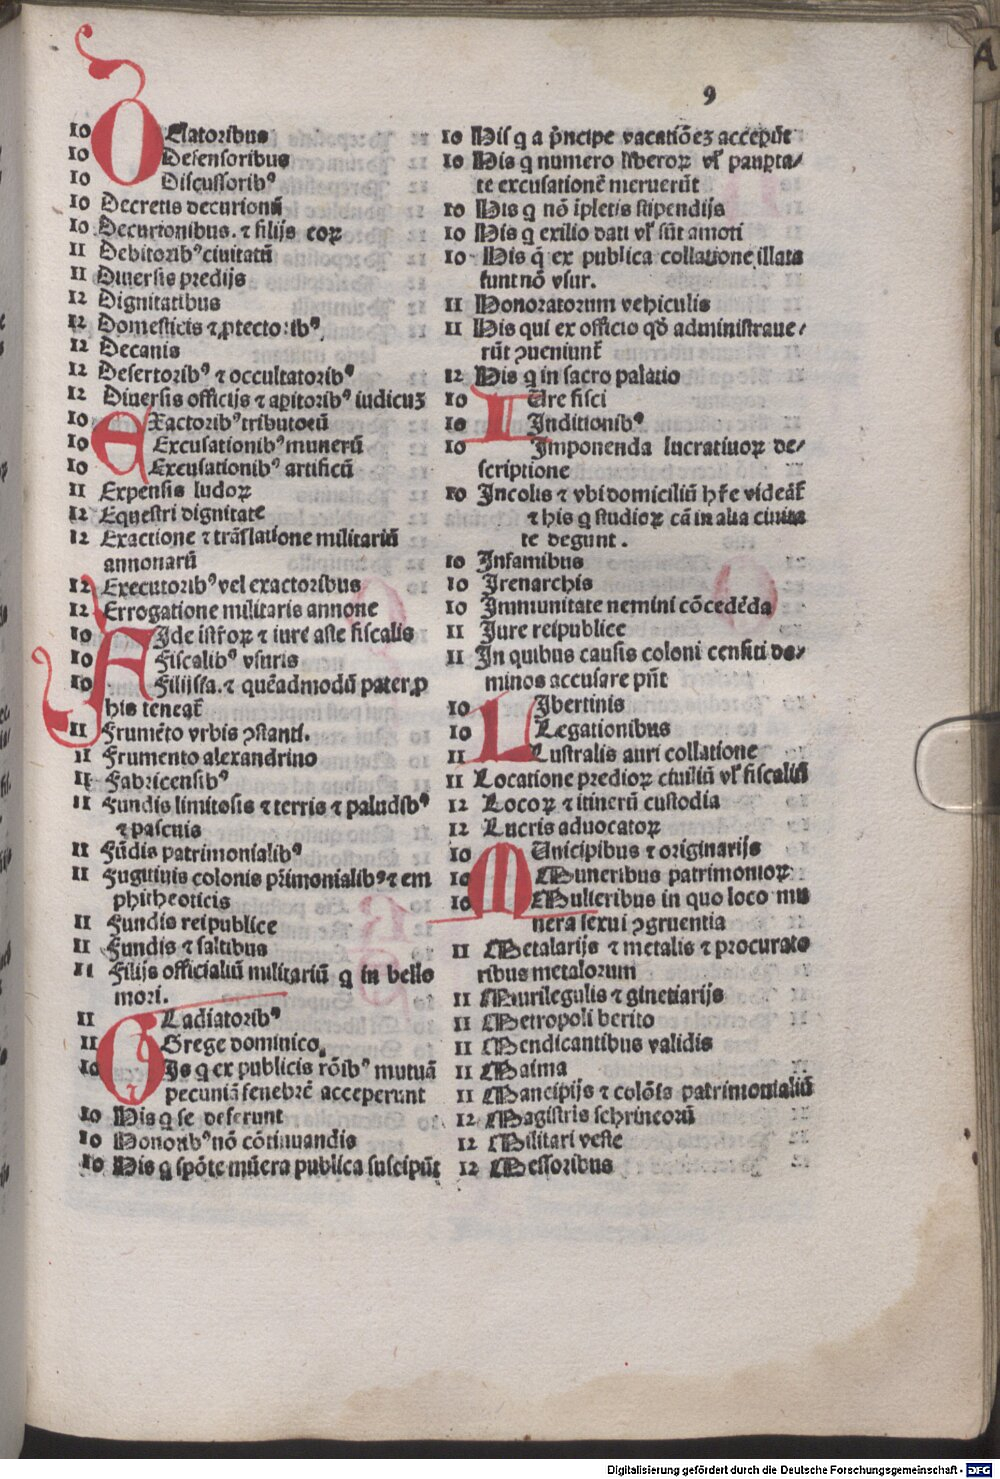 9
10 DElatoribus
10 Defensoribus
10 Discussoribꝰ
10 Decretis decurionū
10 Decurionibus. ⁊ filijs eoꝝ
11 Debitoribꝰ ciuitatū
11 Diuersis predijs
12 Dignitatibus
12 Domesticis ⁊ ꝓtectoribꝰ
12 Decanis
12 Desertoribꝰ ⁊ occultatoribꝰ
12 Diuersis officijs ⁊ aꝑitoribꝰ iudicuꝫ
10 EXactoribꝰ tributoꝛū
10 Excusationibꝰ munerū
10 Excusationibꝰ artificū
11 Expensis ludoꝝ
12 Equestri dignitate
12 Exactione ⁊ trāslatione militariū
annonarū
12 Executoribꝰ vel exactoribus
12 Errogatione militaris annone
10 FIde istr̄oꝝ ⁊ iure aste fiscalis
10 Fiscalibꝰ vsuris
10 Filijsfa. ⁊ quēadmodū pater ꝓ
his teneat̄
11 Frumēto vrbis ꝯstanti.
11 Frumento alexandrino
11 Fabricensibꝰ
11 Fundis limitosis ⁊ terris ⁊ paludibꝰ
⁊ pascuis
11 Fūdis patrimonialibꝰ
11 Fugitiuis colonis pr̄imonialibꝰ ⁊ em
phitheoticis
11 Fundis reipublice
11 Fundis ⁊ saltibus
11 Filijs officialiū militariū q̄ in bello
mori.
11 GLadiatoribꝰ
11 Grege dominico.
10 HIs q̄ ex publicis rōibꝰ mutuā
pecuniā fenebrē acceperunt
10 His q̄ se deferunt
10 Honoribꝰ nō cōtinuandis
10 His q̄ spōte mūera publica suscipūt
10 His q̄ a pͥncipe vacatiōeꝫ acceperūt
10 His q̄ numero liberoꝝ vl̓ pauꝑta⸗
te excusationē meruerūt
10 His q̄ nō īpletis stipendijs
10 His q̄ exilio dati vl̓ sūt amoti
10 His q̄ ex publica collatione illata
sunt nō vsur.
11 Honoratorum vehiculis
11 His qui ex officio qd̄ administraue⸗
rūt ꝯueniunt̄
12 His q̄ in sacro palatio
10 IUre fisci
10 Inditionibꝰ
10 Imponenda lucratiuoꝝ de⸗
scriptione
10 Incolis ⁊ vbi domiciliū hr̄e videāt̄
⁊ his q̄ studioꝝ cā in alia ciuita
te degunt.
10 Infamibus
10 Irenarchis
10 Immunitate nemini cōcedēda
11 Jure reipublice
11 In quibus causis coloni censiti do⸗
minos accusare pn̄t
10 LIbertinis
10 Legationibus
11 Lustralis auri collatione
11 Locatione predioꝝ ciuiliū vl̓ fiscaliū
12 Locoꝝ ⁊ itinerū custodia
12 Lucris aduocatoꝝ
10 MUnicipibus ⁊ originarijs
10 Muneribus patrimonioꝝ
10 Mulieribus in quo loco mu
nera sexui ꝯgruentia
11 Metalarijs ⁊ metalis ⁊ procurato
ribus metalorum
11 Murilegulis ⁊ ginetiarijs
11 Metropoli berito
11 Mendicantibus validis
11 Maima
11 Mancipijs ⁊ colōīs patrimonialiū
12 Magistris schrineorū
12 Militari veste
12 Messoribus
Digitalisierung gefördert durch die Deutsche Forschungsgemeinschaft - DFG